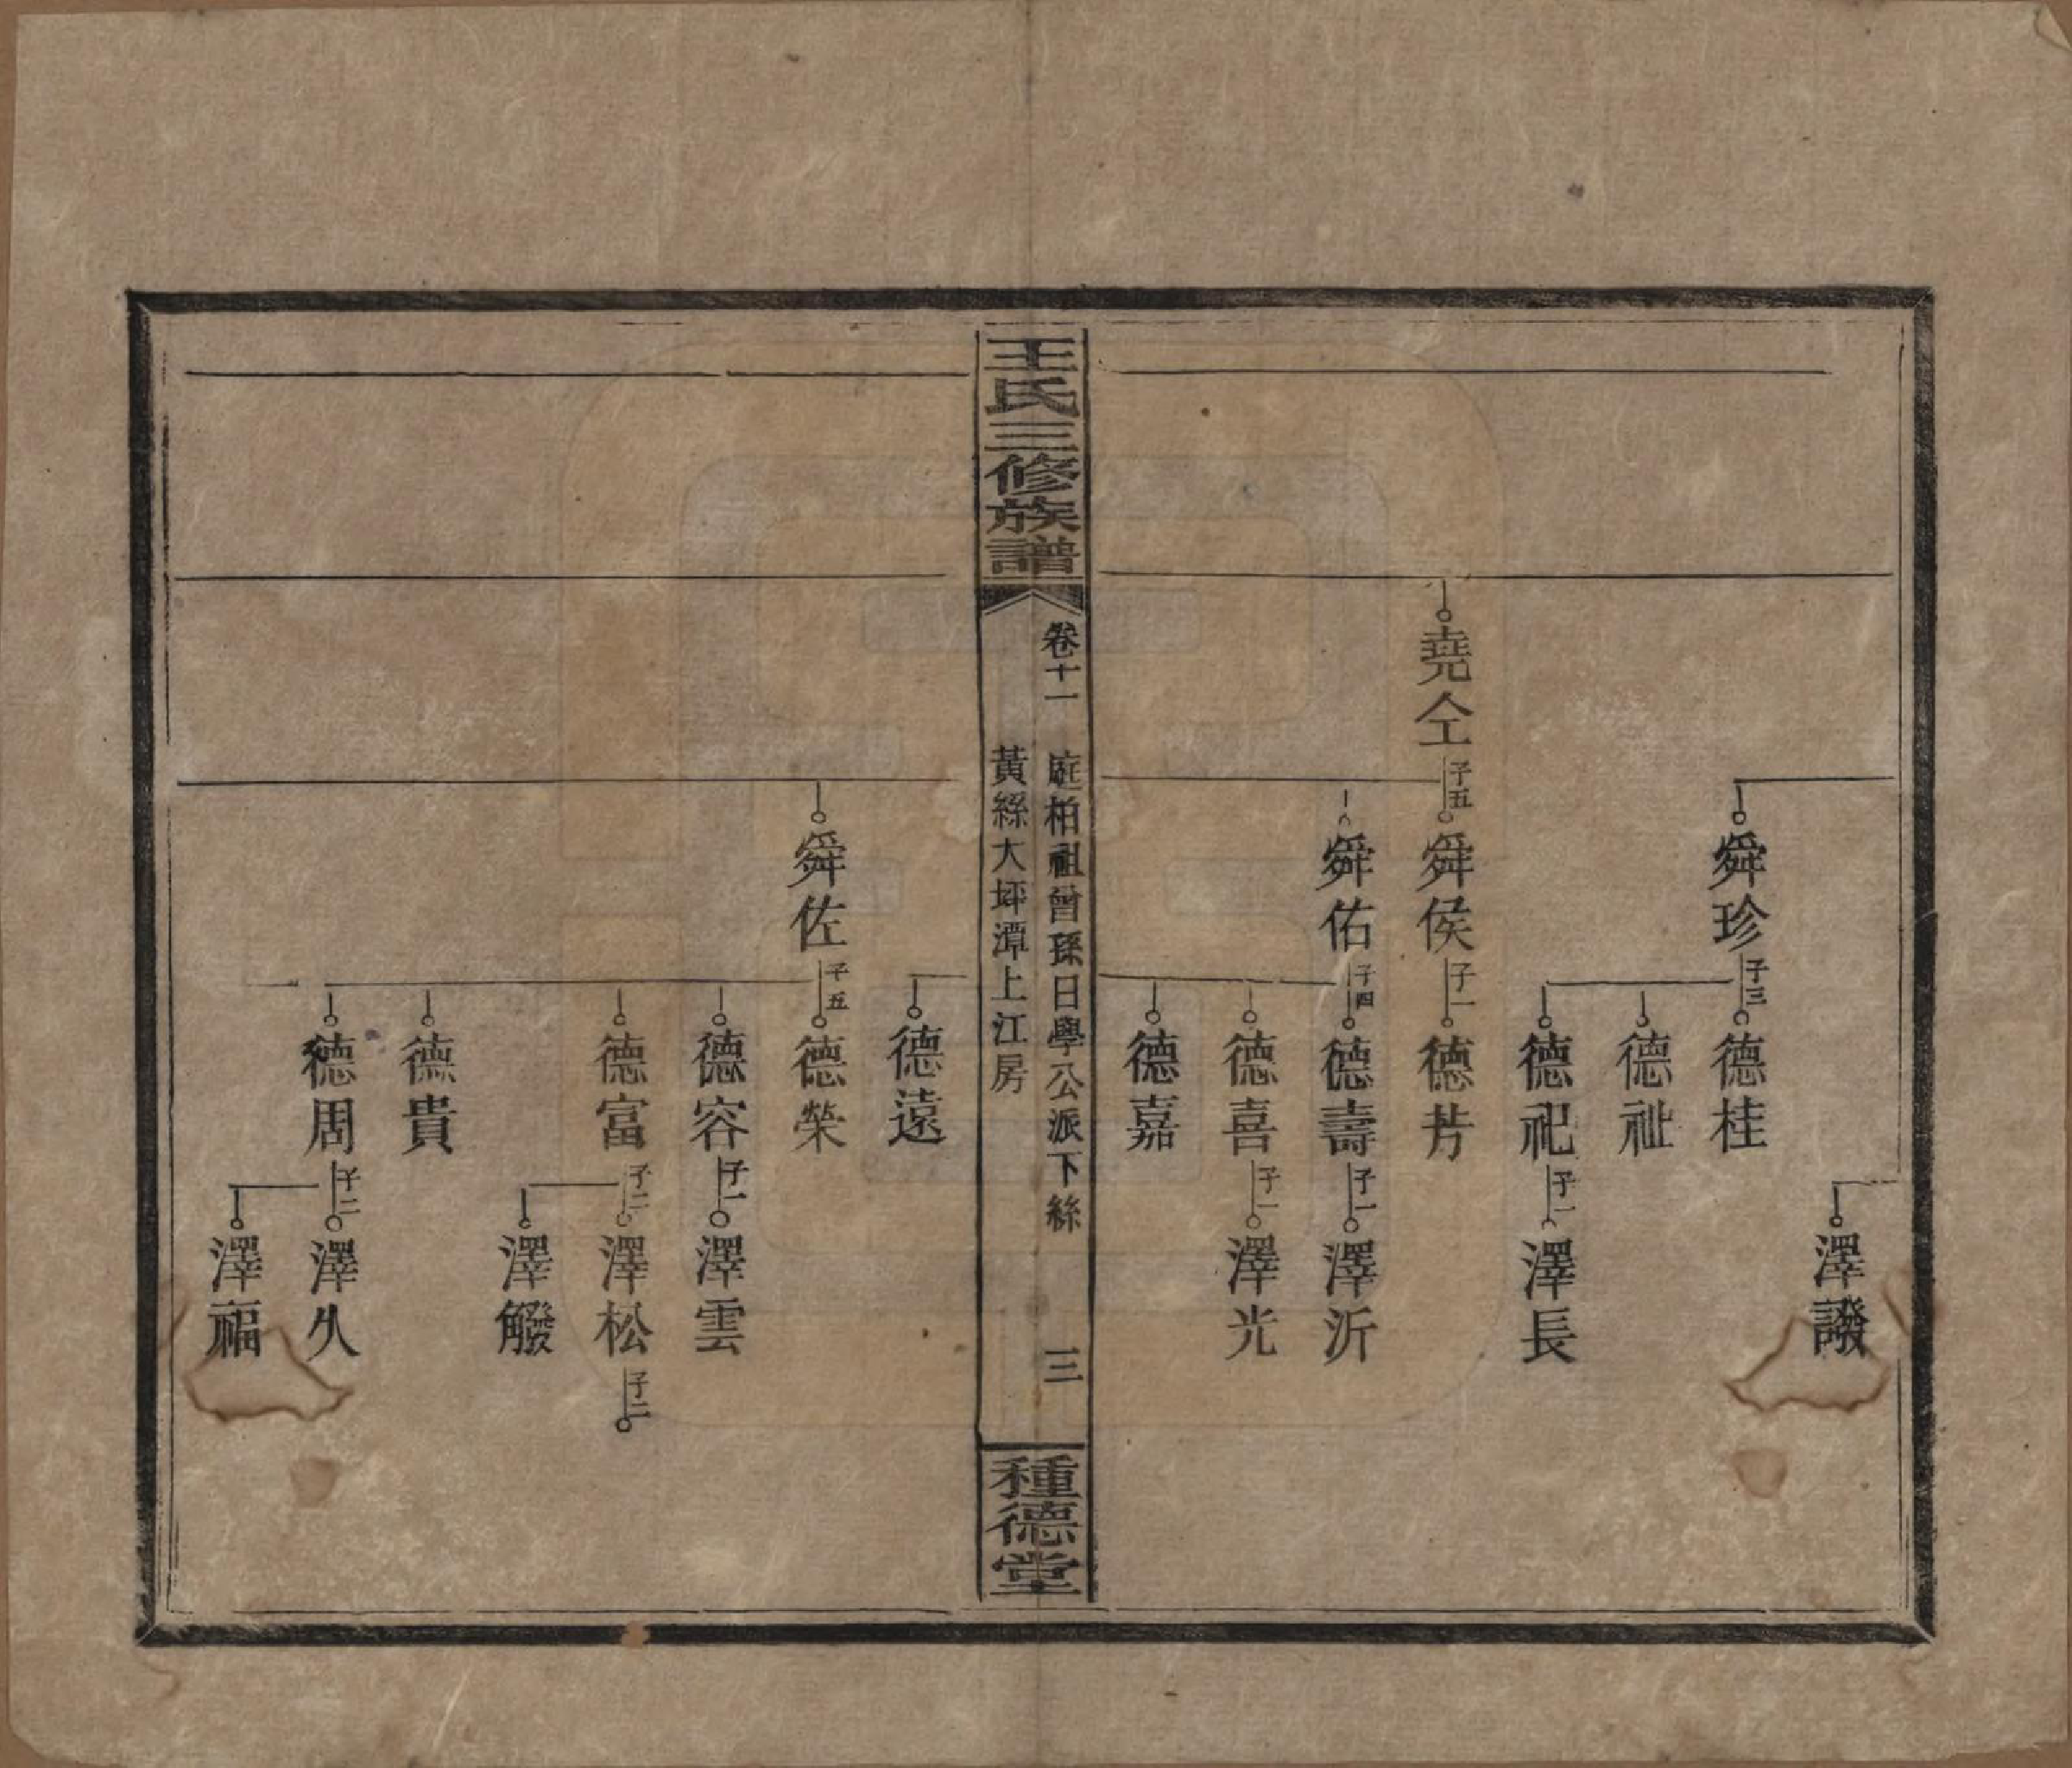 澤諁
舜珍 子三 德桂
德祉
德祀 子一 澤長
堯仝 子五 舜侯 子一 德芳
舜佑 子四 德壽 子一 澤沂
德喜 子一 澤光
德嘉
王氏三修族譜
卷十一 庭柏祖曾孫日學公派下綜 三
黃綜大坪潭上江房
種德堂
德遠
舜佐 子五 德榮
德容 子一 澤雲
德富 子二 澤松 子二
澤
德貴
德周 子二 澤久
澤福